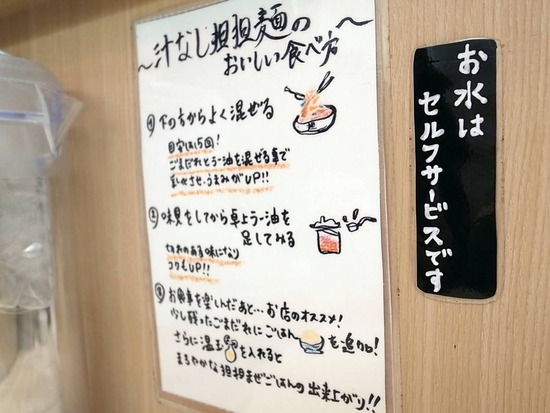 〜汁なし担担麺の
おいしい食べ方〜
① 下の方からよく混ぜる
目安は15回！
ごまだれとラー油を混ぜる事で
香りがUP!!
② 味見をしてから卓上ラー油を
足してみる
切れのある味になり
コクもUP!!
③ お食事を楽しんだあと…お店のオススメ！
少し残ったごまだれにごはんを追加！
さらに温玉を入れると
まろやかな担担まぜごはんの出来上がり!!
お水は
セルフサービスです